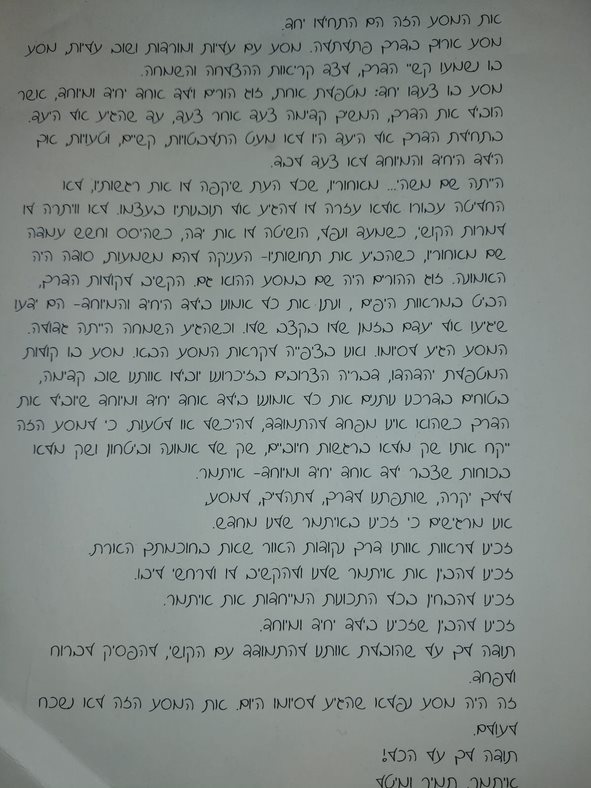 את המסע הזה הם התחילו יחד.
מסע ארוך בדרך פתלתלה. מסע עם עליות ומורדות ושוב עליות, מסע
בו נשמעו קשיי הדרך, לצד קריאות ההצלחה והשמחה.
מסע בו צעדו יחד: מטפלת אחת, זוג הורים וילד אחד יחיד ומיוחד, אשר
הוביל את הדרך, המשיך קדימה צעד אחר צעד, עד שהגיע אל היעד.
בתחילת הדרך אל היעד היו לא מעט התלבטויות, קשיים, וטעויות, אך
הילד היחיד והמיוחד לא צעד לבד.
הייתה שם מישהי... מאחוריו, שכל העת שיקפה לו את רגשותיו, לא
החליטה עבורו אלא עזרה לו להגיע אל תובנותיו בעצמו. לא וויתרה לו
למרות הקושי, כשמעד ונפל, הושיטה לו את ידה, כשהיסס וחשש עמדה
שם מאחוריו, כשהביע את תחושותיו- העניקה להם משמעות, סודה היה
האמונה. זוג ההורים היה שם במסע ההוא גם. הקשיב לקולות הדרך,
הביט במראות היפים , ונתן את כל אמונו בילד היחיד והמיוחד- הם ידעו
שיגיעו אל יעדם בזמן שלו בקצב שלו. וכשהגיע השמחה הייתה גדולה.
המסע הגיע לסיומו. ואנו בציפייה לקראת המסע הבא. מסע בו קולות
המטפלת יהדהדו, דבריה הצרובים בזיכרוננו יובילו אותנו שוב קדימה,
בטוחים בדרכנו נותנים את כל אמוננו בילד אחד יחיד ומיוחד שיוביל את
הדרך כשהוא אינו מפחד להתמודד, להיכשל או לטעות. כי למסע הזה
ייקח אותו שק מלא ברגשות חיוביים, שק של אמונה וביטחון ושק מלא
בכוחות שצבר ילד אחד יחיד ומיוחד- איתמר.
לילך יקרה, שותפתנו לדרך, לתהליך, למסע,
אנו מרגישים כי זכינו באיתמר שלנו מחדש.
זכינו לראות אותו דרך נקודות האור שאת בחוכמתך הארת.
זכינו להבין את איתמר שלנו ולהקשיב לו ולרחשי ליבו.
זכינו להבחין בכל התכונות המייחדות את איתמר.
זכינו להבין שזכינו בילד יחיד ומיוחד.
תודה לך על שהובלת אותנו להתמודד עם הקושי, להפסיק לברוח
ולפחד.
זה היה מסע נפלא שהגיע לסיומו היום. את המסע הזה לא נשכח
לעולם.
תודה לך על הכל!
איתמר, תמיר ומיטל